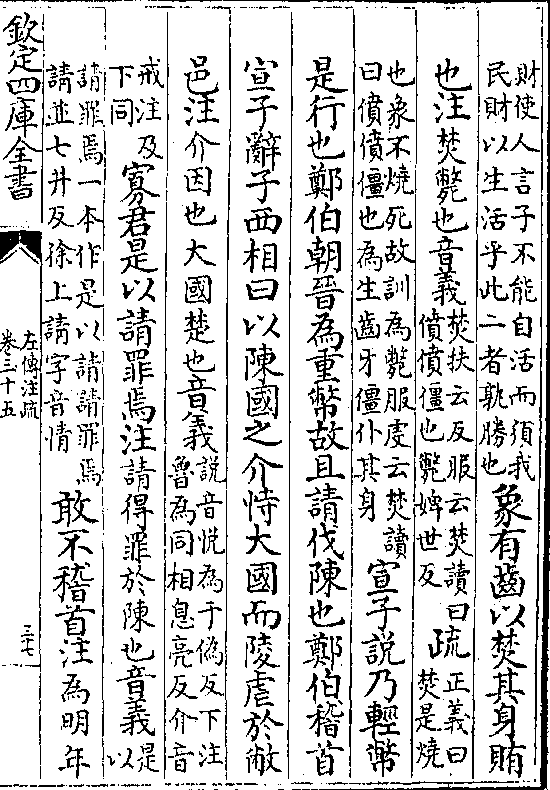 財使人言子不能自活而須我
民財以生活乎此二者孰勝也
象有齒以焚其身賄
也注焚斃也音義
焚扶云反服云焚讀曰
僨僨僵也斃婢世反
疏
正義曰
焚是燒
也象不燒死故訓為斃服虔云焚讀
曰僨僨僵也為生齒牙僵仆其身
宣子說乃輕幣
是行也鄭伯朝晉為重幣故且請伐陳也鄭伯稽首
宣子辭子西相曰以陳國之介恃大國而陵虐於敝
邑注介因也大國楚也音義
說音悅為于偽反下注
魯為同相息亮反介音
戒注及
下同
寡君是以請罪焉注請得罪於陳也音義
是
以
請罪焉一本作是以請請罪焉
請並七井反徐上請字音情
敢不稽首注為明年
欽定四庫全書
左傳注疏
卷三十五
三七